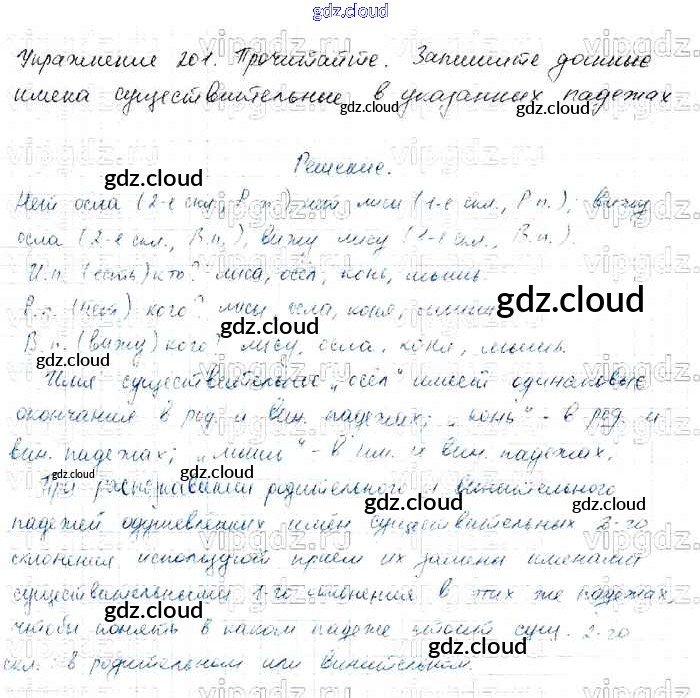 gdz.cloud
Упражнение 201. Прочитайте. Запишите данные
имена существительные в указанных падежах
gdz.cloud
Решение.
gdz.cloud
Нет осла (2-е скл., Р.п.) нет лисы (1-е скл., Р.п.), вижу
осла (2-е скл., В.п.), вижу лису (1-е скл., В.п.).
gdz.cloud
И.п. (есть) кто? лиса, осёл, конь, мышь.
Р.п. (нет) кого? лисы, осла, коня, мыши
gdz.cloud
gdz.cloud
В.п. (вижу) кого? лису, осла, коня, мышь.
gdz.cloud
gdz.cloud
Имя существительное "осёл" имеет одинаковые
окончания в род. и вин. падежах; "конь" - в род. и
gdz.cloud
вин. падежах; "мышь" - в им. и вин. падежах.
gdz.cloud
При распознавании родительного и винительного
падежей одушевлённых имён существительных 2-го
gdz.cloud
склонения используют приём их замены именами
существительными 1-го склонения в этих же падежах,
gdz.cloud
gdz.cloud
чтобы понять в каком падеже стоит сущ. 2-го
скл.: в родительном или винительном.
gdz.cloud